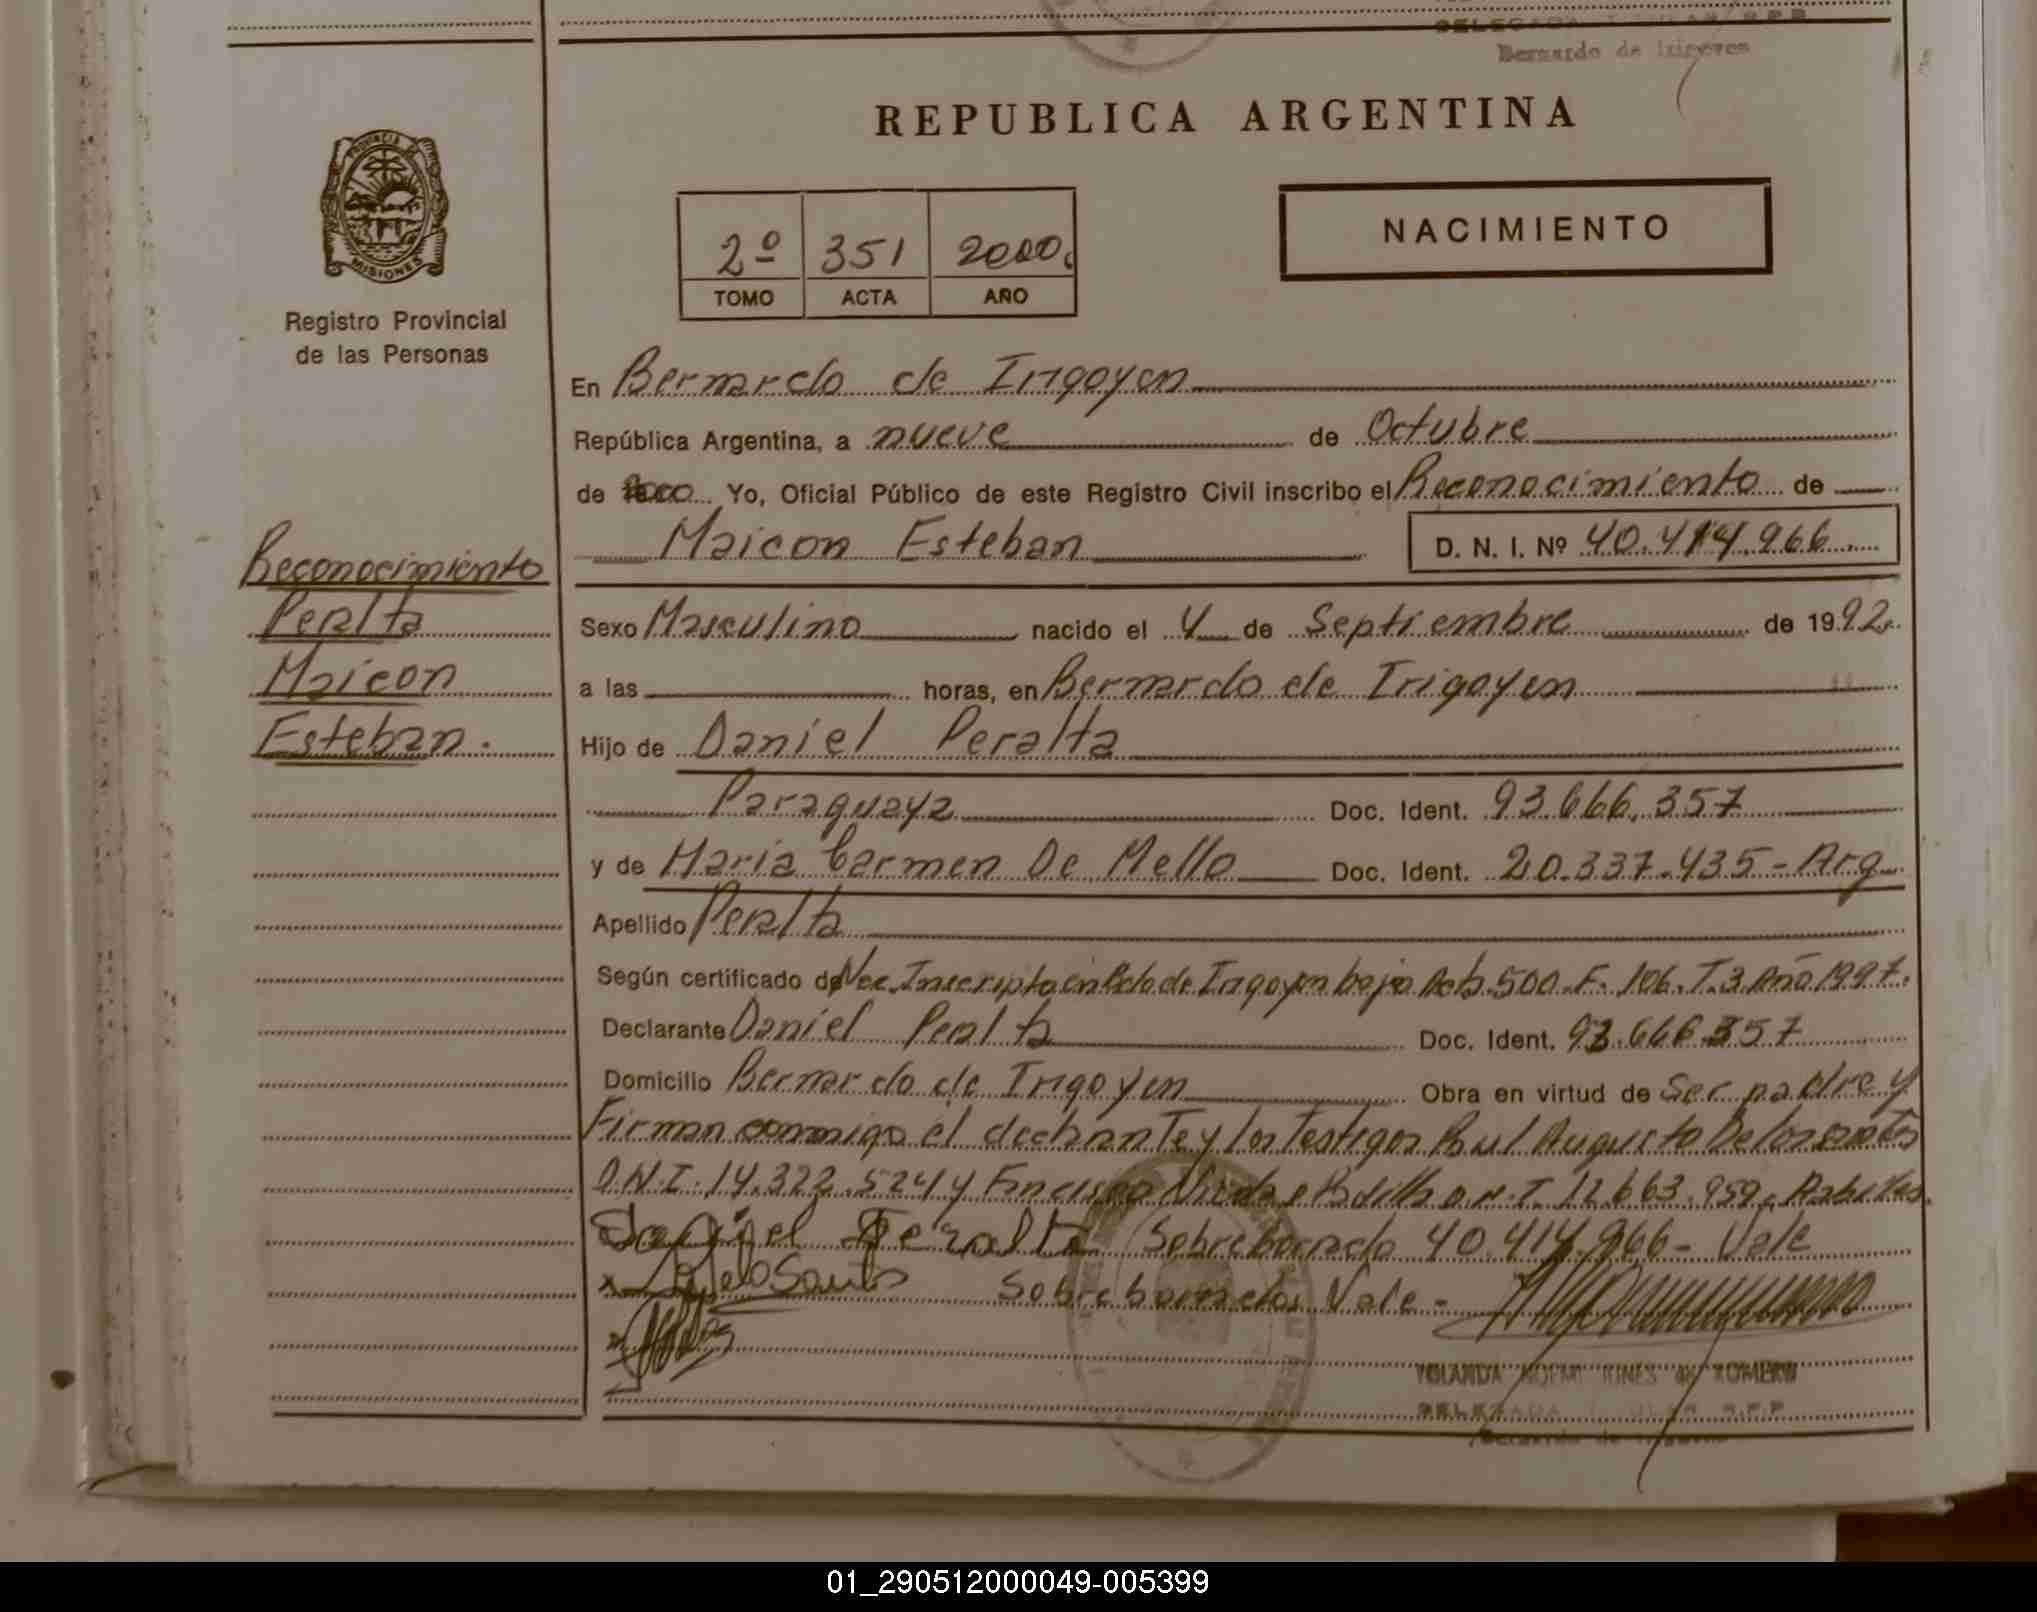 Bernardo de Irigoyen
REPUBLICA ARGENTINA
PROVINCIA DE
MISIONES
Registro Provincial
de las Personas
2º 351 2000.
TOMO ACTA AÑO
NACIMIENTO
En Bernardo de Irigoyen
República Argentina, a nueve de Octubre
de 2000 Yo, Oficial Público de este Registro Civil inscribo el Reconocimiento de
Maicon Esteban D. N. I. Nº 40.414.966
Reconocimiento
Peralta
Maicon
Esteban.
Sexo Masculino nacido el 4 de Septiembre de 1992.
a las horas, en Bernardo de Irigoyen
Hijo de Daniel Peralta
Paraguaya Doc. Ident. 93.666.357
y de Maria Carmen De Mello Doc. Ident. 20.337.435 - Arg
Apellido Peralta
Según certificado de Nac. Inscripta en Bdo de Irigoyen bajo Acta 500. F. 106. T. 3 Año 1997.
Declarante Daniel Peralta Doc. Ident. 93.666.357
Domicilio Bernardo de Irigoyen Obra en virtud de Ser padre y
Firman conmigo el declarante y los Testigos Raul Augusto Delossantos
D.N.I. 14.322.524 y Francisco Padilla D.N.I. 12.663.959.
Daniel Peralta Sobreborrado 40.414.966 - Vale
Sobreborrado Vale -
YOLANDA NOEMI RINES de ROMERO
DELEGADA TITULAR R.P.P
Bernardo de Irigoyen
01_290512000049-005399